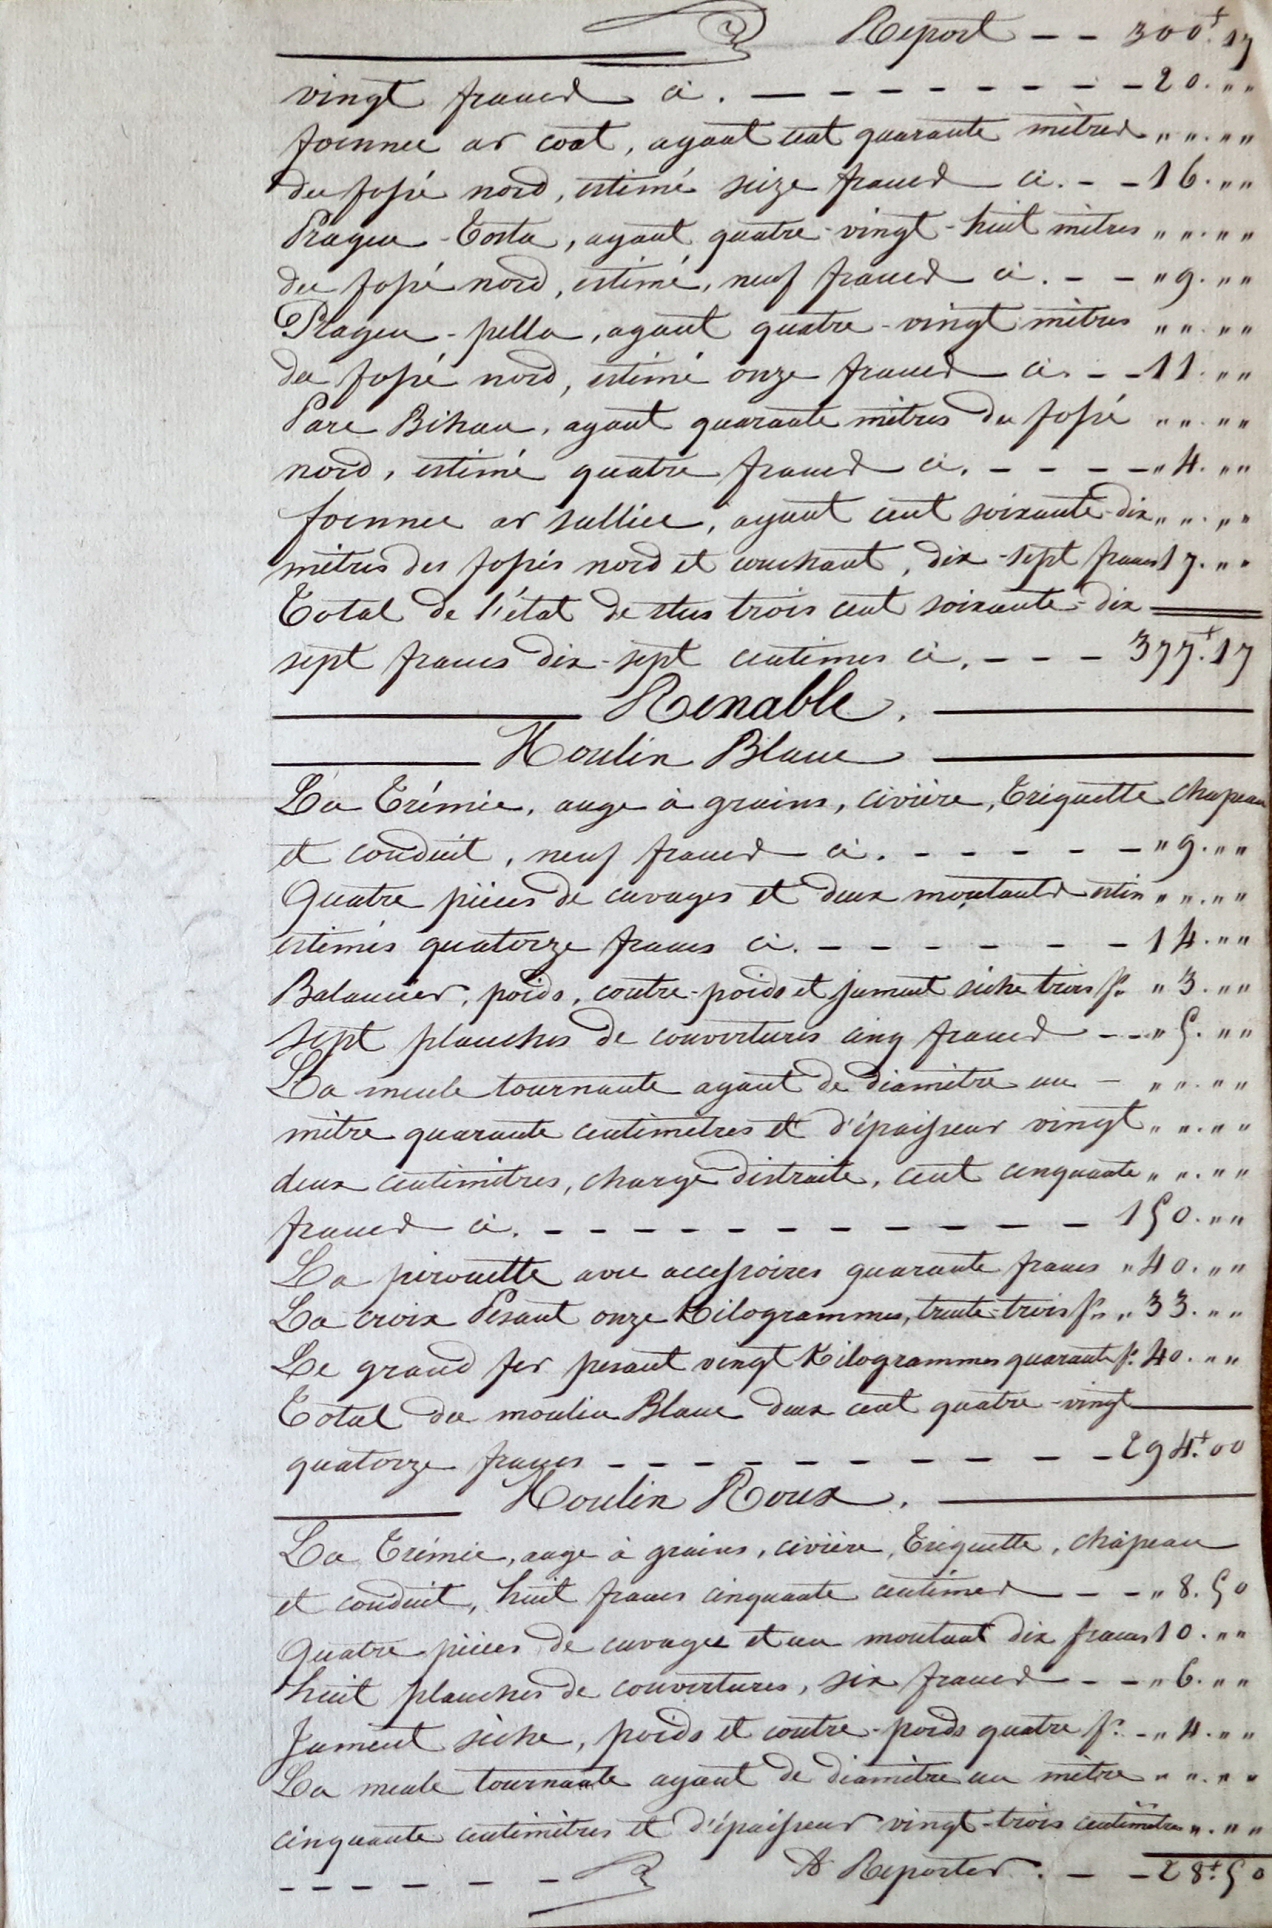 Report — — 300f.17
vingt francs ci. — — — — — — — — — 20. „ „
foënnec ar coat, ayant cent quarante mètres „ „. „ „
du fossé nord, estimé seize francs ci. — — 16. „ „
Pragen - Tosta, ayant quatre-vingt-huit mètres „ „. „ „
du fossé nord, estimé, neuf francs ci. — — „ 9. „ „
Pragen - pella, ayant quatre-vingt mètres „ „. „ „
du fossé nord, estimé onze francs ci. — — 11. „ „
Parc Bihan, ayant quarante mètres du fossé „ „. „ „
nord, estimé quatre francs ci. — — — — „ 4. „ „
foënnec ar sulliec, ayant cent soixante-dix „ „. „ „
mètres des fossés nord et couchant, dix-sept francs 17. „ „
Total de l'état de stus trois cent soixante-dix
sept francs dix-sept centimes ci. — — — 377f.17
Renable.
Moulin Blanc
La Trémie, auge à grains, civière, Triquette chapeau
et conduit, neuf francs ci. — — — — — — „ 9. „ „
Quatre pièces de cuvages et deux montants estim „ „. „ „
estimés quatorze francs ci. — — — — — — 14. „ „
Balancier, poids, contre-poids et jument sèche trois fr. „ 3. „ „
sept planches de couvertures cinq francs — — „ 5. „ „
La meule tournante ayant de diamètre un — „ „. „ „
mètre quarante centimètres et d'épaisseur vingt „ „. „ „
deux centimètres, charge distraite, cent cinquante „ „. „ „
francs ci. — — — — — — — — — — — — 150. „ „
La pirouette avec accessoires quarante francs „ 40. „ „
La croix Pesant onze Kilogrammes, trente-trois fr. „ 33. „ „
Le grand fer pesant vingt Kilogrammes quarante fr. 40. „ „
Total du moulin Blanc deux cent quatre-vingt
quatorze francs — — — — — — — — — — 294f.00
Moulin Roux.
La Trémie, auge à grains, civière, Triquette, chapeau
et conduit, huit francs cinquante centimes — — „ 8.50
Quatre pièces de cuvages et un montant dix francs 10. „ „
huit planches de couvertures, six francs — — „ 6. „ „
Jument sèche, poids et contre-poids quatre fr. — „ 4. „ „
La meule tournante ayant de diamètre un mètre „ „. „ „
cinquante centimètres et d'épaisseur vingt-trois centimètres „. „ „
A Reporter. — — 28f.50